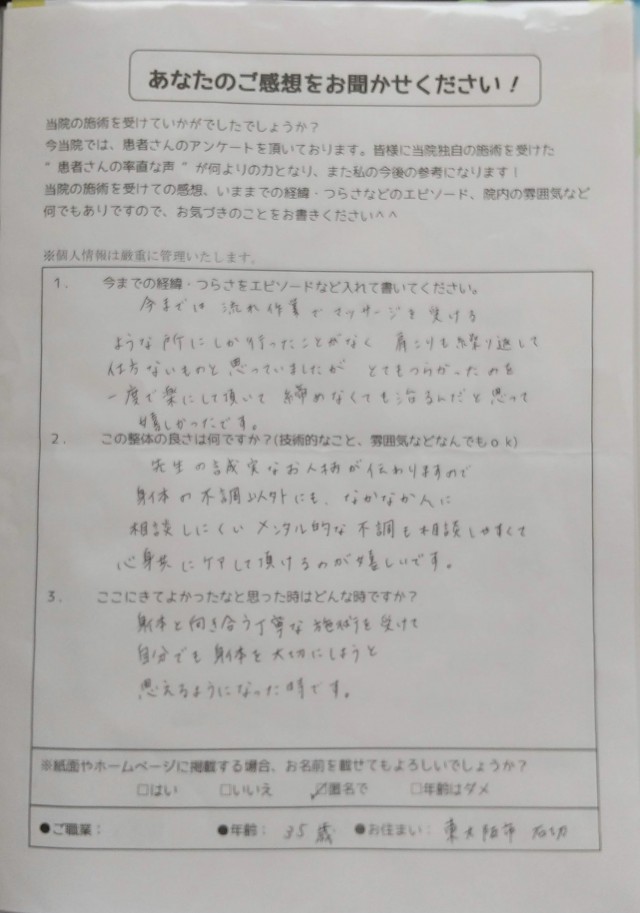 あなたのご感想をお聞かせください！
当院の施術を受けていかがでしたでしょうか？
今当院では、患者さんのアンケートを頂いております。皆様に当院独自の施術を受けた
“患者さんの率直な声”が何よりの力となり、また私の今後の参考になります！
当院の施術を受けての感想、いままでの経緯・つらさなどのエピソード、院内の雰囲気など
何でもありですので、お気づきのことをお書きください^^
※個人情報は厳重に管理いたします。
1． 今までの経緯・つらさをエピソードなど入れて書いてください。
今までは 流れ作業でマッサージを受ける
ような所にしか行ったことがなく 肩こりも繰り返して
仕方ないものと思っていましたが とてもつらかったのを
一度で楽にして頂いて 諦めなくても治るんだと思って
嬉しかったです。
2． この整体の良さは何ですか？(技術的なこと、雰囲気などなんでもｏｋ)
先生の誠実なお人柄が伝わりますので
身体の不調以外にも、なかなか人に
相談しにくい メンタル的な不調も相談しやすくて
心身共にケアして頂けるのが嬉しいです。
3． ここにきてよかったなと思った時はどんな時ですか？
身体と向き合う丁寧な施術を受けて
自分でも身体を大切にしようと
思えるようになった時です。
※紙面やホームページに掲載する場合、お名前を載せてもよろしいでしょうか？
□はい □いいえ ☑匿名で □年齢はダメ
●ご職業： ●年齢： 35歳 ●お住まい： 東大阪市 石切